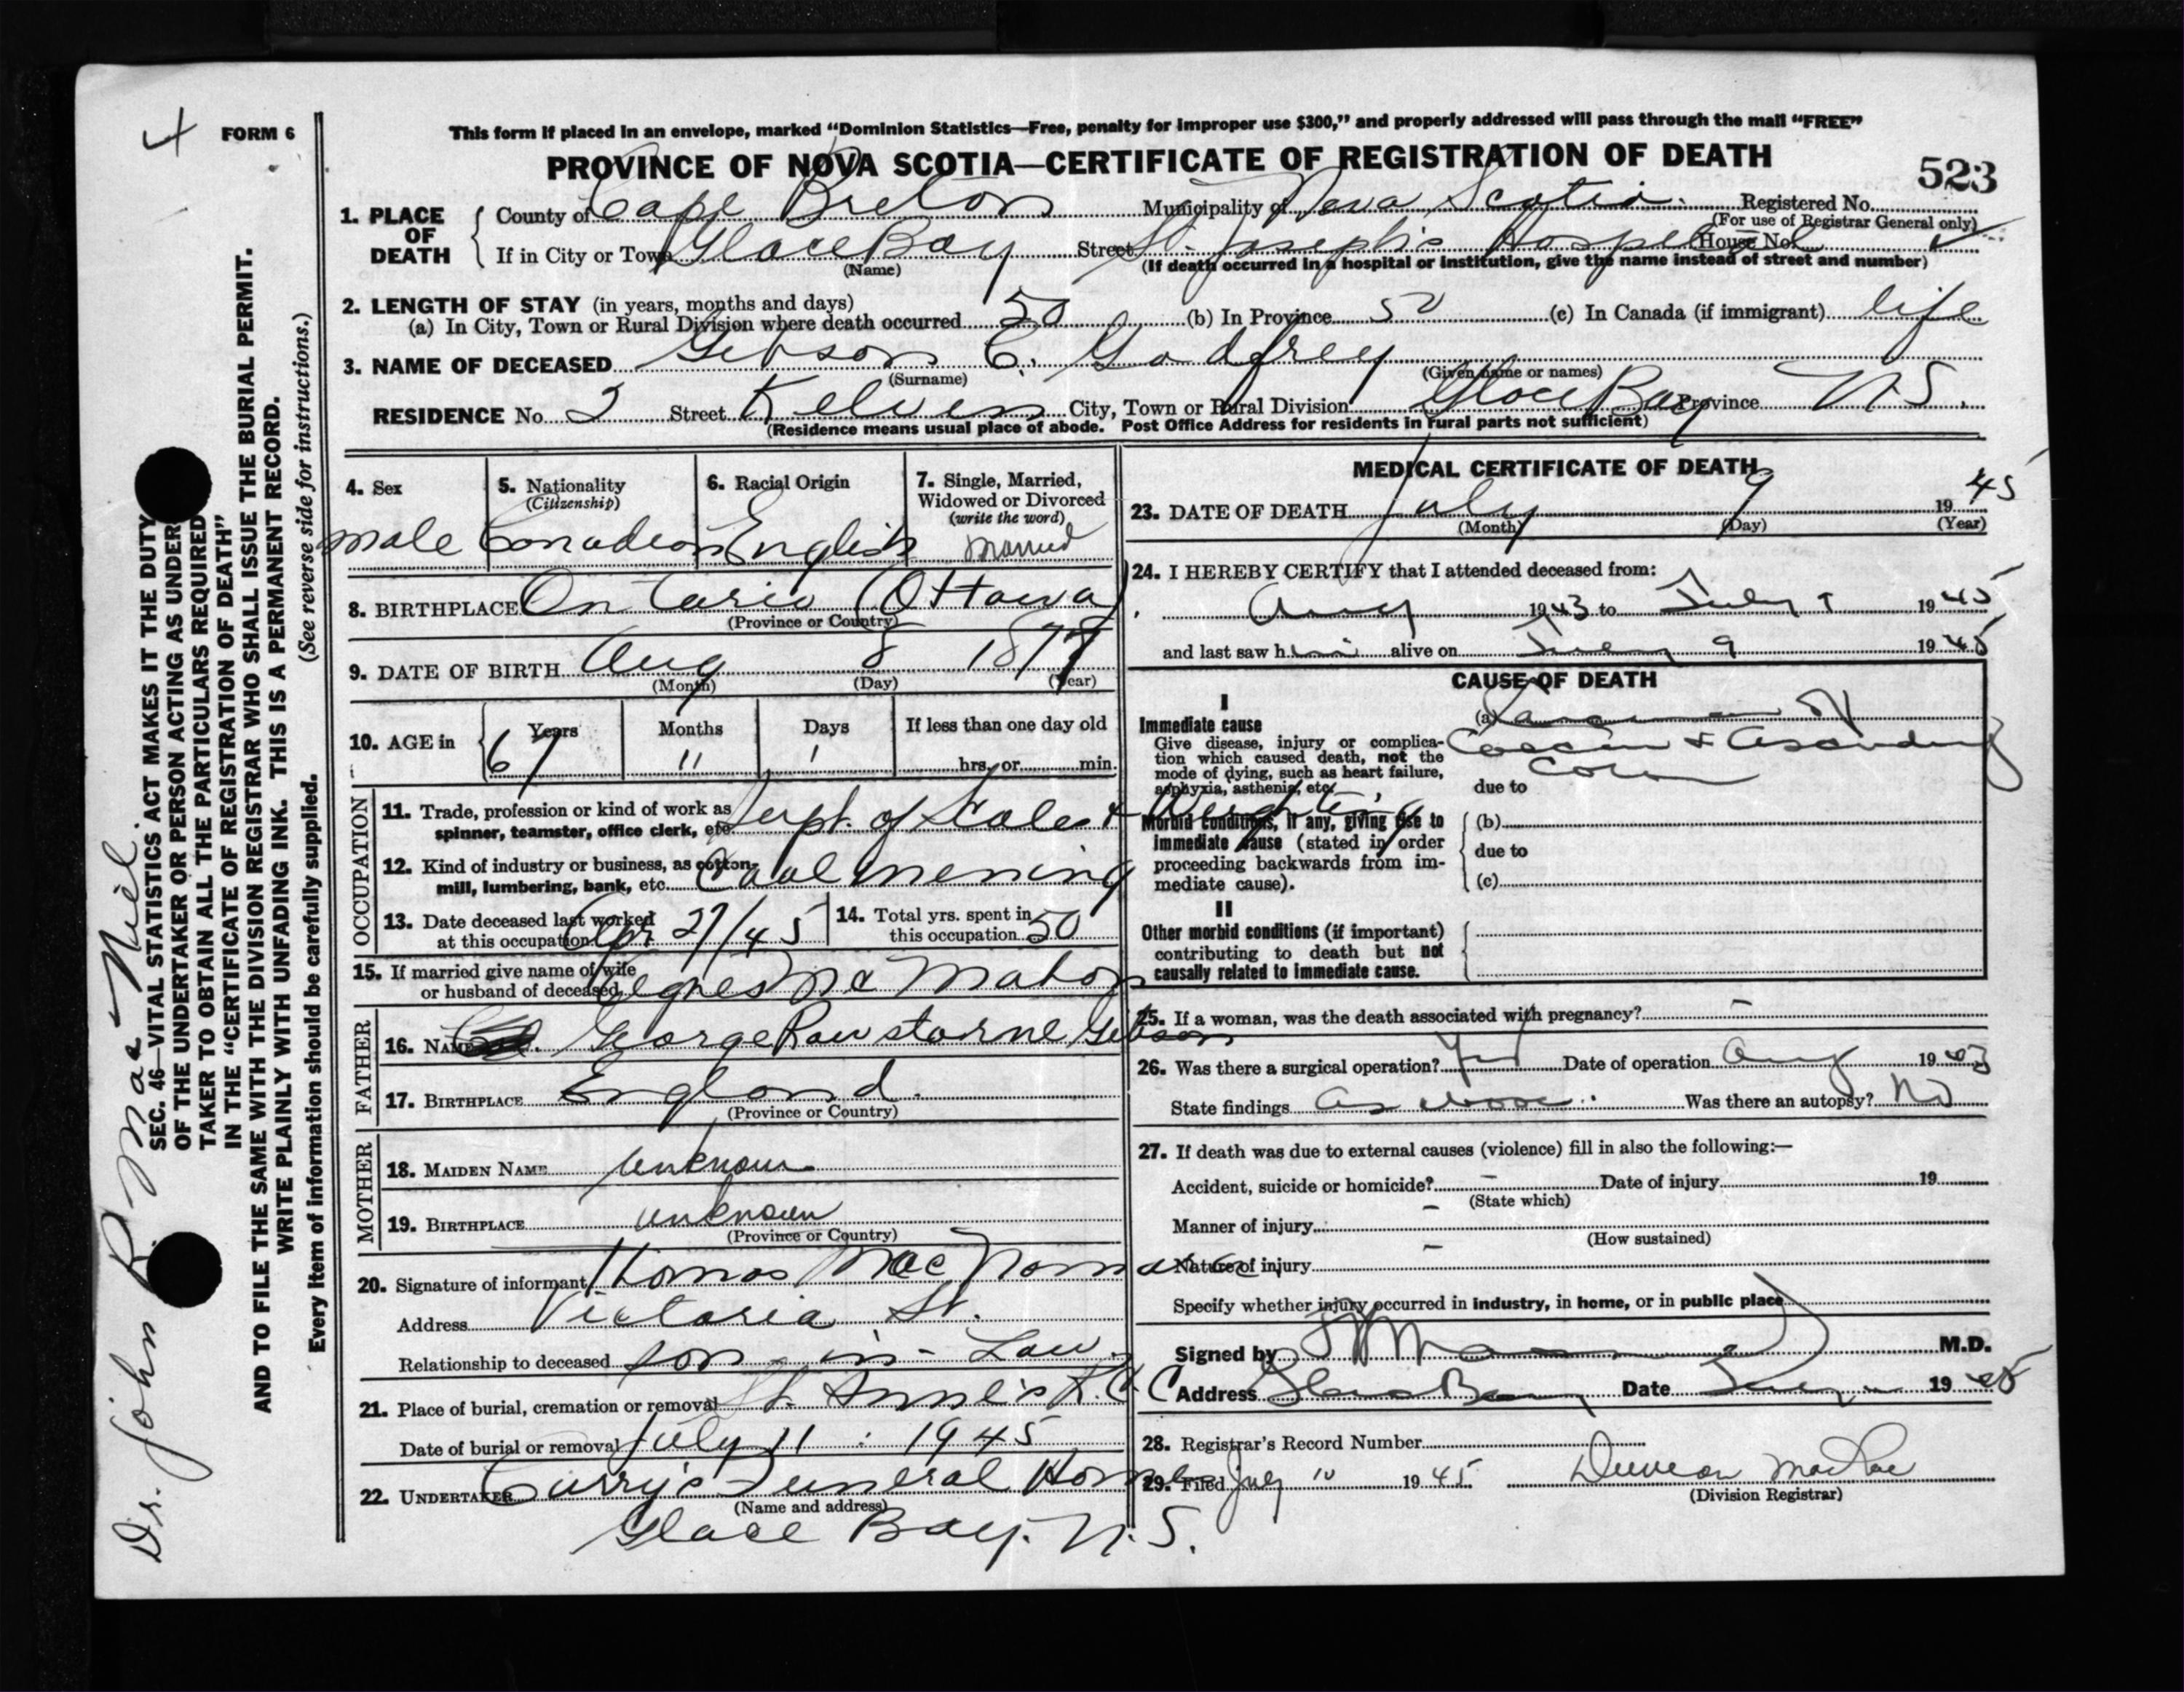 4
FORM 6
This form if placed in an envelope, marked "Dominion Statistics—Free, penalty for improper use $300," and properly addressed will pass through the mail "FREE"
PROVINCE OF NOVA SCOTIA—CERTIFICATE OF REGISTRATION OF DEATH
523
1. PLACE OF DEATH
County of Cape Breton Municipality of Nova Scotia. Registered No.
(For use of Registrar General only)
If in City or Town Glace Bay Street St. Joseph's Hospital House No.
(Name) (If death occurred in a hospital or institution, give the name instead of street and number)
2. LENGTH OF STAY (in years, months and days)
(a) In City, Town or Rural Division where death occurred 50 (b) In Province 50 (c) In Canada (if immigrant) life
3. NAME OF DECEASED Gibson C. Godfrey
(Surname) (Given name or names)
RESIDENCE No. 2 Street Kelvin City, Town or Rural Division Glace Bay Province N.S.
(Residence means usual place of abode. Post Office Address for residents in rural parts not sufficient)
4. Sex male
5. Nationality (Citizenship) Canadian
6. Racial Origin English
7. Single, Married, Widowed or Divorced (write the word) Married
8. BIRTHPLACE Ontario (Ottawa)
(Province or Country)
9. DATE OF BIRTH Aug 8 1877
(Month) (Day) (Year)
10. AGE in Years 67 Months 11 Days 1 If less than one day old
hrs. or min.
OCCUPATION
11. Trade, profession or kind of work as spinner, teamster, office clerk, etc. Supt. of Scales & Weighting
12. Kind of industry or business, as cotton-mill, lumbering, bank, etc. Coal mening
13. Date deceased last worked at this occupation Apr 27/45
14. Total yrs. spent in this occupation 50
15. If married give name of wife or husband of deceased Agnes Mc Mahon
FATHER
16. NAME George Rawstorne Gibson
17. BIRTHPLACE England.
(Province or Country)
MOTHER
18. MAIDEN NAME unknown
19. BIRTHPLACE unknown
(Province or Country)
20. Signature of informant Thomas MacNamara
Address Victoria St.
Relationship to deceased son-in-Law.
21. Place of burial, cremation or removal St. Anne's R.C.
Date of burial or removal July 11 1945
22. UNDERTAKER Curry's Funeral Home
(Name and address)
Glace Bay. N.S.
MEDICAL CERTIFICATE OF DEATH
23. DATE OF DEATH July 9 1945
(Month) (Day) (Year)
24. I HEREBY CERTIFY that I attended deceased from:
Aug 1943 to July 9 1945
and last saw him alive on July 9 1945
CAUSE OF DEATH
I
Immediate cause
Give disease, injury or complication which caused death, not the mode of dying, such as heart failure, asphyxia, asthenia, etc.
(a) Carcinoma of
Caecum & Ascending
Colon
due to
Morbid conditions, if any, giving rise to immediate cause (stated in order proceeding backwards from immediate cause).
(b)
due to
(c)
II
Other morbid conditions (if important) contributing to death but not causally related to immediate cause.
25. If a woman, was the death associated with pregnancy? -
26. Was there a surgical operation? Yes Date of operation Aug 1943
State findings As above. Was there an autopsy? No
27. If death was due to external causes (violence) fill in also the following:—
Accident, suicide or homicide? - Date of injury 19
(State which)
Manner of injury -
(How sustained)
Nature of injury -
Specify whether injury occurred in industry, in home, or in public place
Signed by M.D.
Address Glace Bay Date July 1945
28. Registrar's Record Number
29. Filed July 10 1945 Duncan MacRae
(Division Registrar)
Dr. John R. MacNiel.
SEC. 46—VITAL STATISTICS ACT MAKES IT THE DUTY
OF THE UNDERTAKER OR PERSON ACTING AS UNDER
TAKER TO OBTAIN ALL THE PARTICULARS REQUIRED
IN THE "CERTIFICATE OF REGISTRATION OF DEATH"
AND TO FILE THE SAME WITH THE DIVISION REGISTRAR WHO SHALL ISSUE THE BURIAL PERMIT.
WRITE PLAINLY WITH UNFADING INK. THIS IS A PERMANENT RECORD.
Every item of information should be carefully supplied. (See reverse side for instructions.)